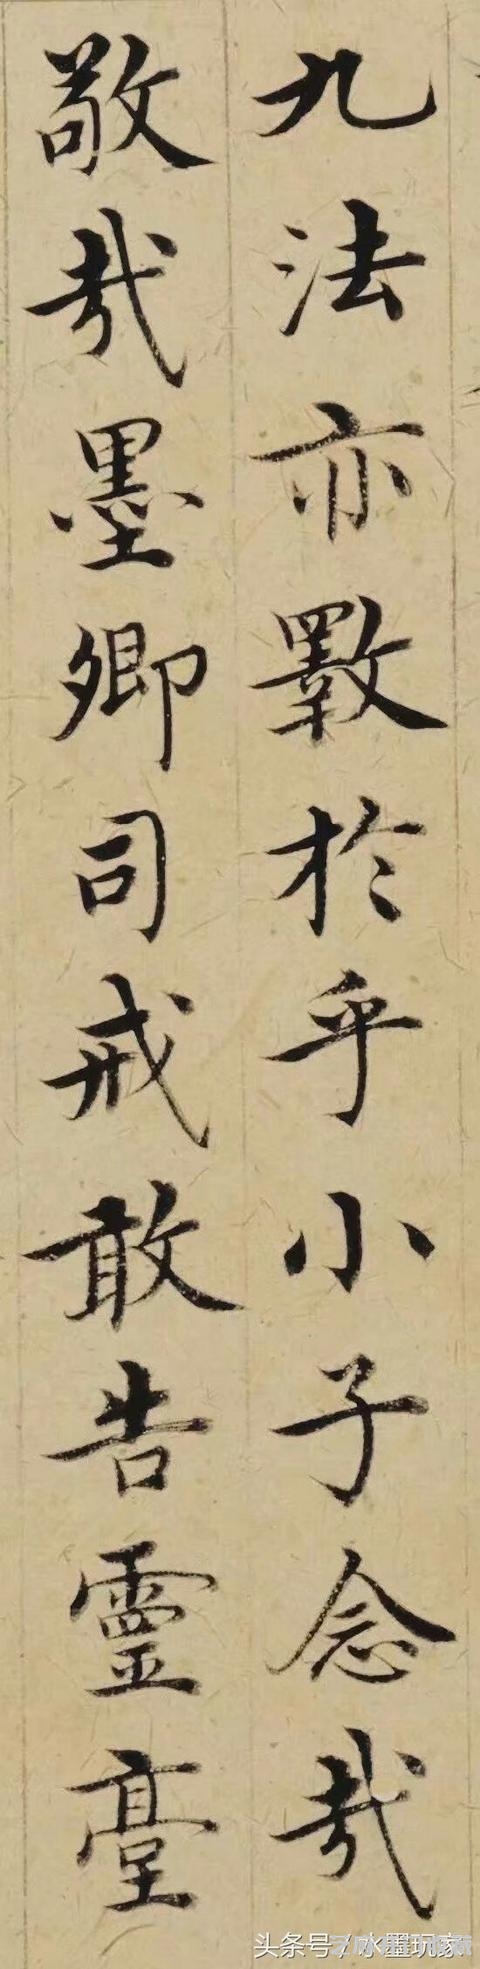 九法亦斁於乎小子念哉
敬哉墨卿司戒敢告靈臺
头条号/水墨玩家